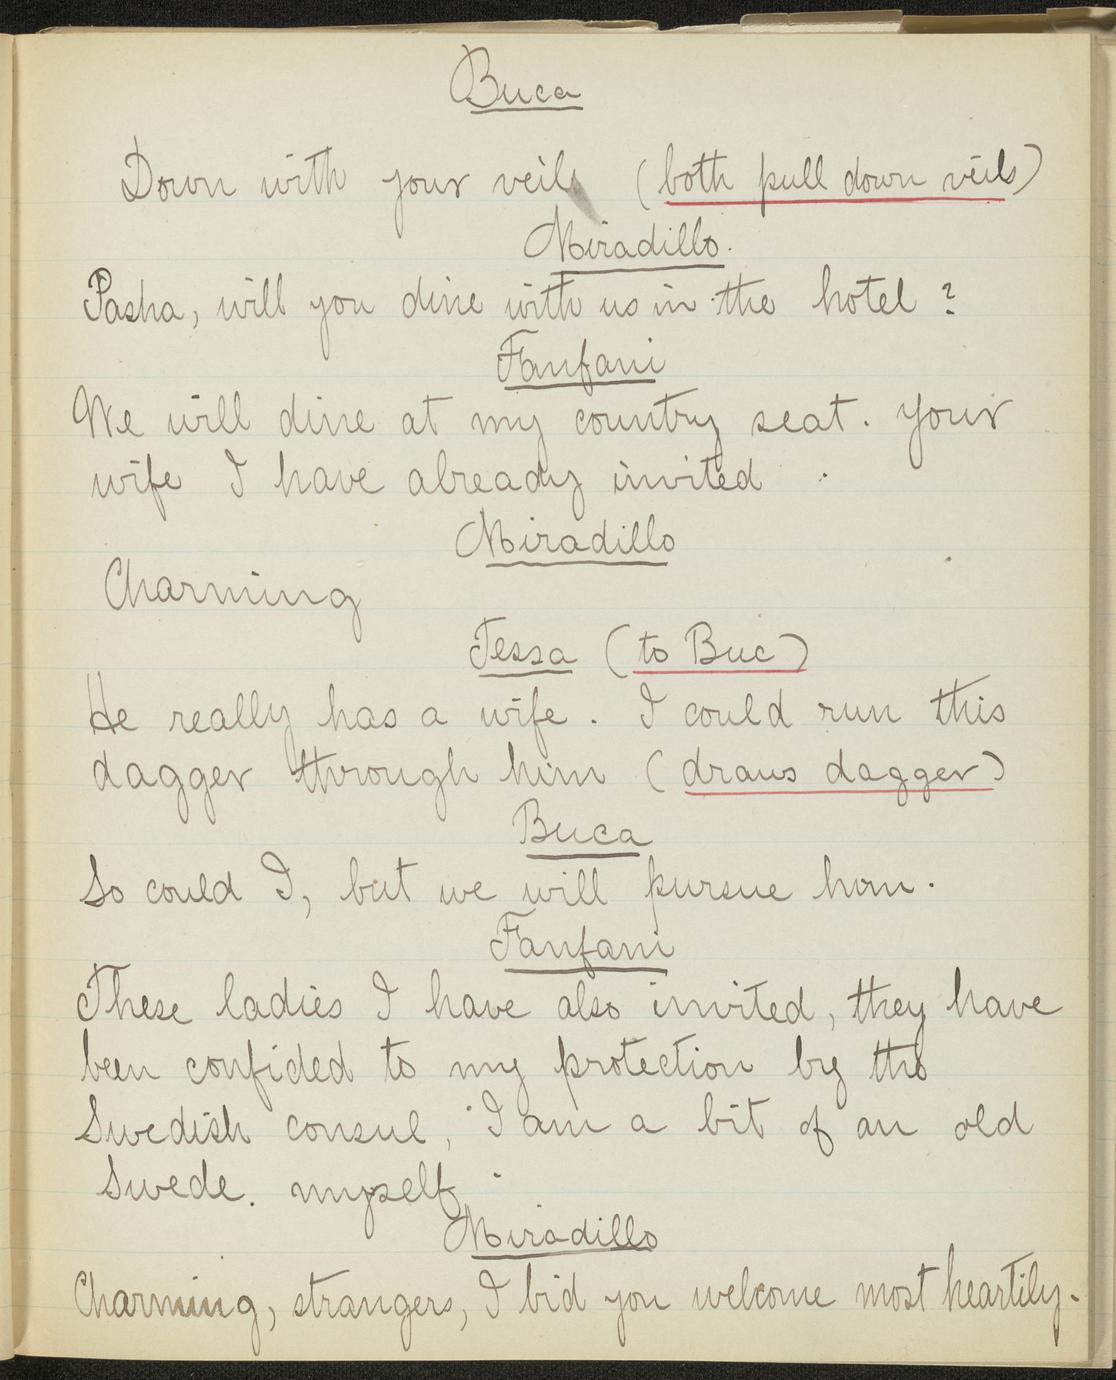 Buca
Down with your veils (both pull down veils)
Miradillo.
Pasha, will you dine with us in the hotel ?
Fanfani
We will dine at my country seat. your
wife I have already invited .
Miradillo
Charming
Tessa (to Buc)
He really has a wife. I could run this
dagger through him (draws dagger)
Buca
So could I, but we will pursue him.
Fanfani
These ladies I have also invited, they have
been confided to my protection by the
Swedish consul, I am a bit of an old
Swede. myself.
Miradillo
Charming, strangers, I bid you welcome most heartily.